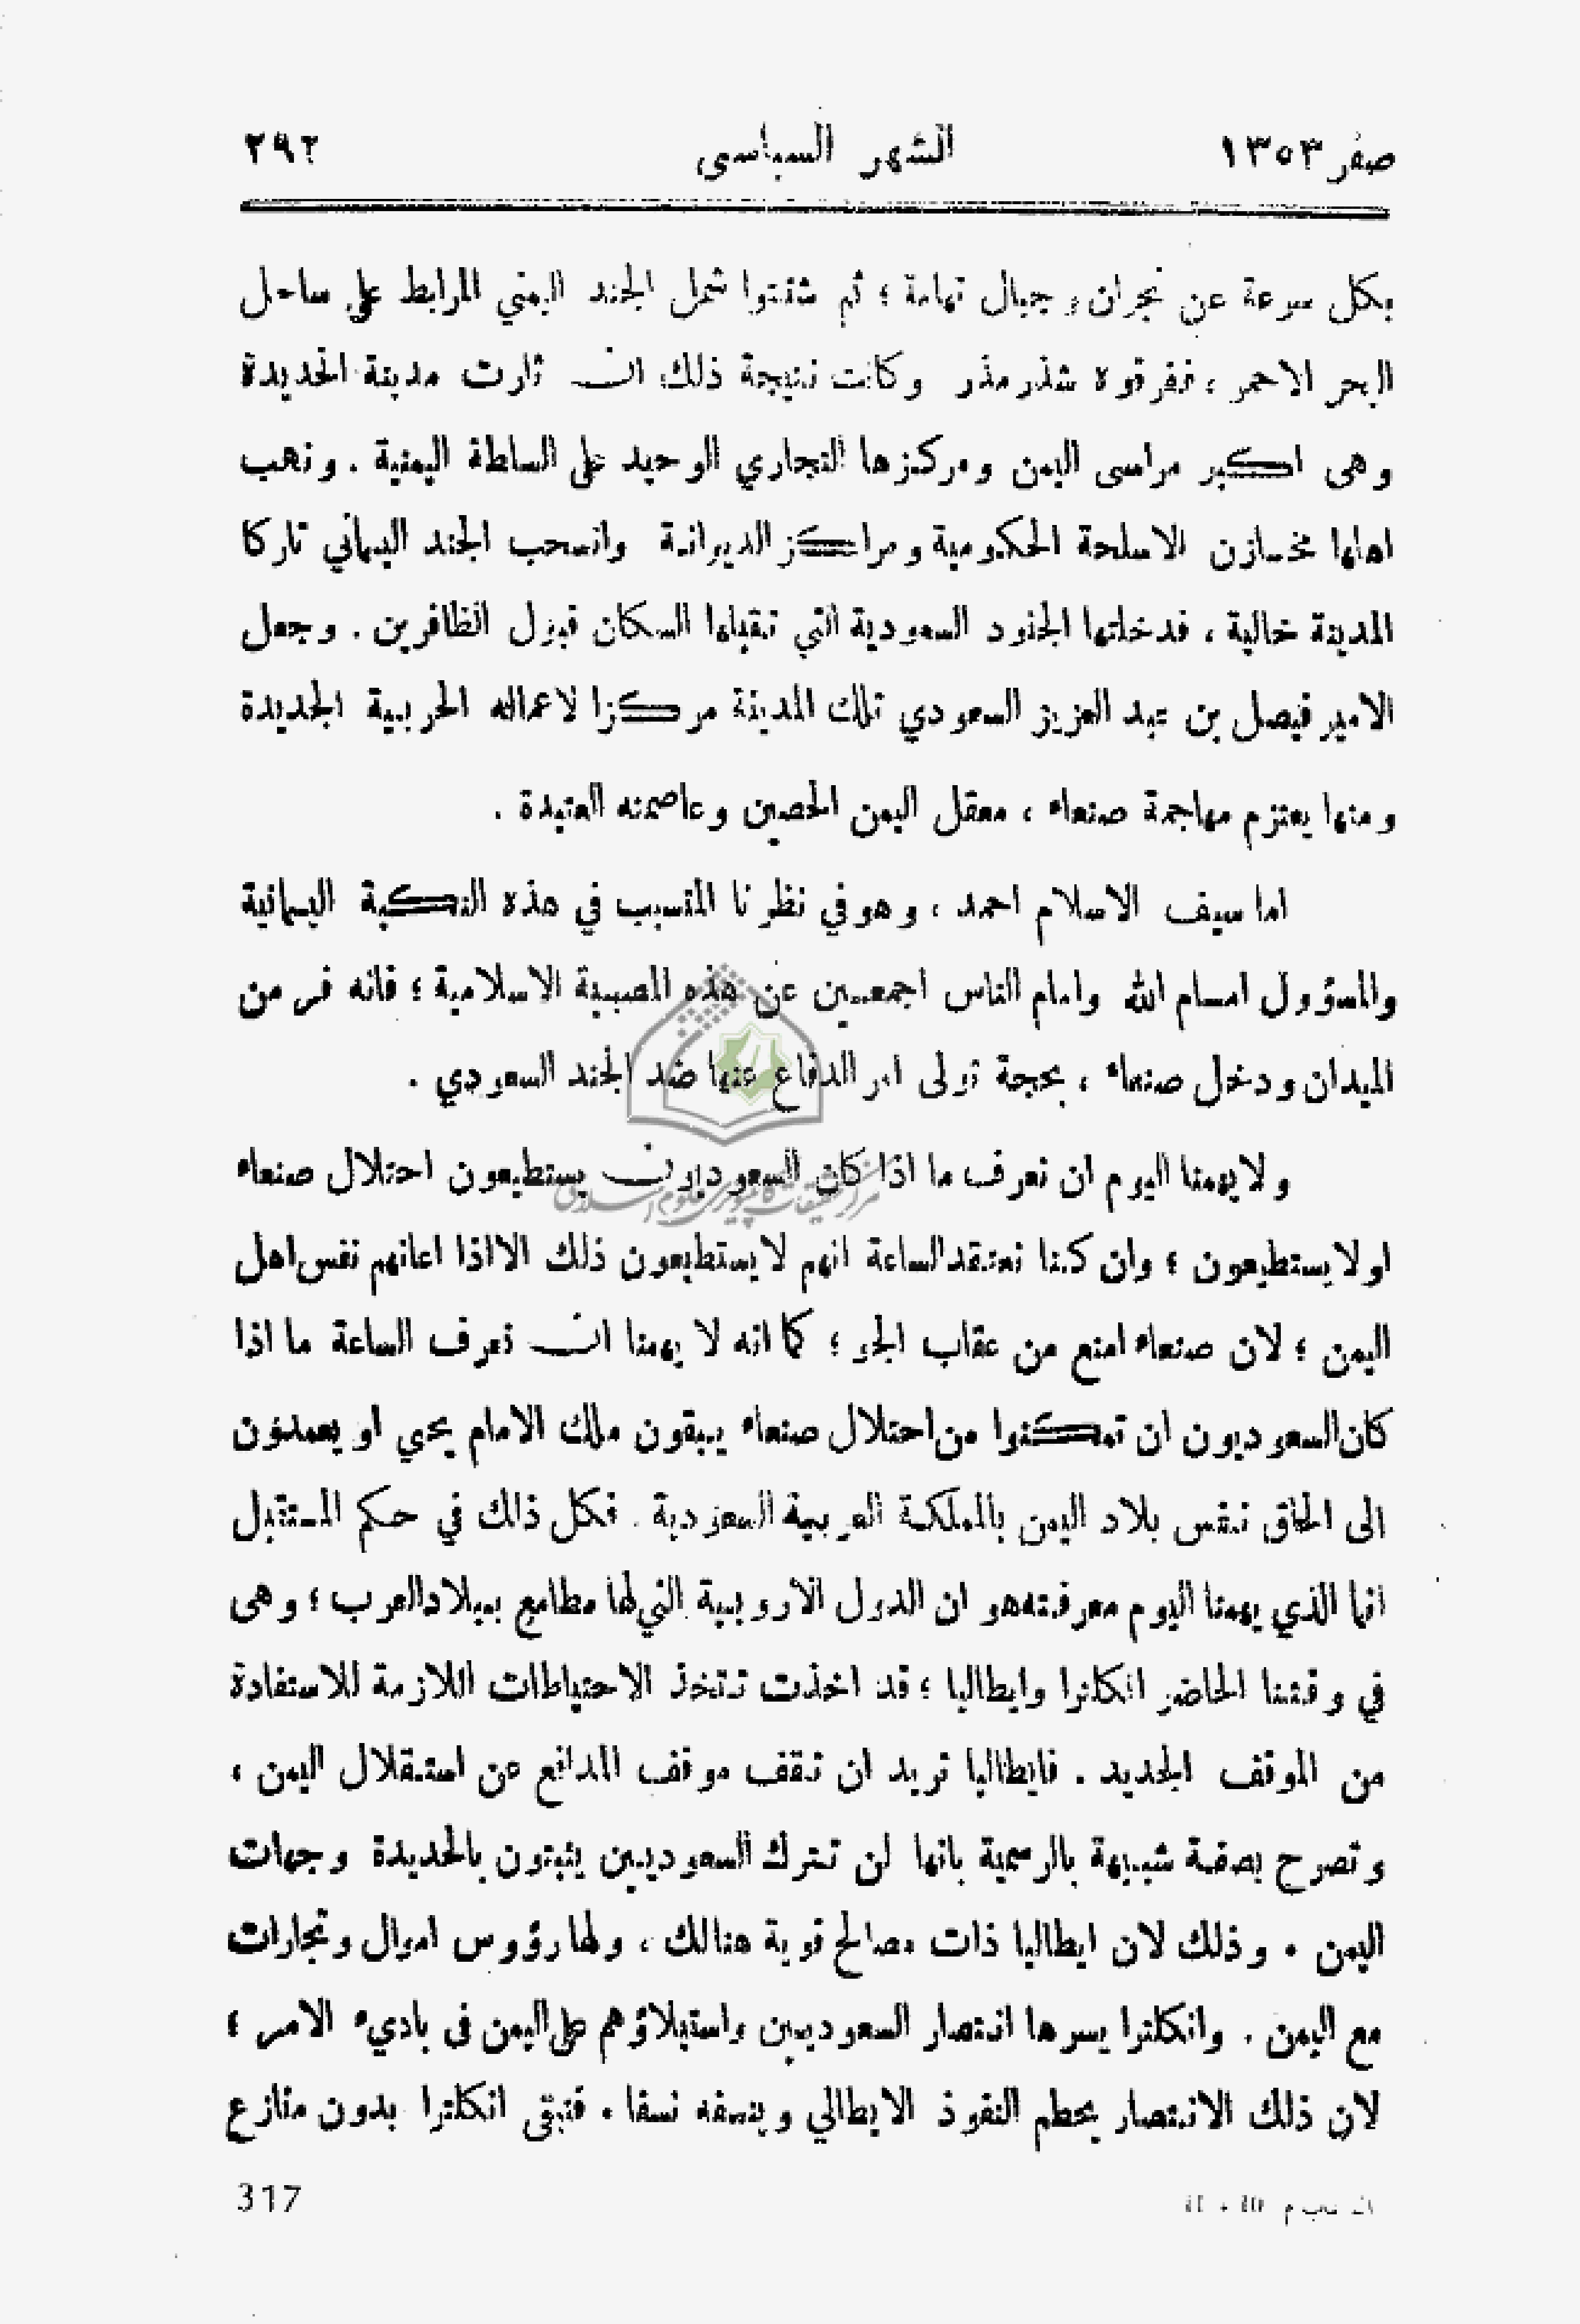 صفر ١٣٥٣ الشهر السياسى ٢٩٢
بكل سرعة عن نجران و جبال تهامة ؛ ثم شتتوا شمل الجند اليمني المرابط على ساحل
البحر الاحمر ، ففرقوه شذر مذر وكانت نتيجة ذلك ان ثارت مدينة الحديدة
وهى اكبر مراسى اليمن ومركزها التجاري الوحيد على السلطة اليمنية . ونهب
اهلها مخازن الاسلحة الحكومية ومراكز الديوانة وانسحب الجند اليماني تاركا
المدينة خالية ، فدخلتها الجنود السعودية التي تقبلها السكان قبول الظافرين . وجعل
الامير فيصل بن عبد العزيز السعودي تلك المدينة مركزا لاعماله الحربية الجديدة
ومنها يعتزم مهاجمة صنعاء ، معقل اليمن الحصين وعاصمته العتيدة .
اما سيف الاسلام احمد ، وهو في نظرنا المتسبب في هذه النكبة اليمانية
والمسؤول امام الله وامام الناس اجمعين عن هذه المصيبة الاسلامية ؛ فانه فر من
الميدان ودخل صنعاء ، بحجة تولى امر الدفاع عنها ضد الجند السعودي .
ولا يهمنا اليوم ان نعرف ما اذا كان السعوديون يستطيعون احتلال صنعاء
او لا يستطيعون ؛ وان كنا نعتقد الساعة انهم لا يستطيعون ذلك الا اذا اعانهم نفس اهل
اليمن ؛ لان صنعاء امنع من عقاب الجو ؛ كما انه لا يهمنا ان نعرف الساعة ما اذا
كان السعوديون ان تمكنوا من احتلال صنعاء يبقون ملك الامام يحي او يعمدون
الى الحاق نفس بلاد اليمن بالمملكة العربية السعودية . فكل ذلك في حكم المستقبل
انما الذي يهمنا اليوم معرفته هو ان الدول الاروبية التي لها مطامع ببلاد العرب ؛ وهى
في وقتنا الحاضر انكلترا وايطاليا ؛ قد اخذت تتخذ الاحتياطات اللازمة للاستفادة
من الموقف الجديد . فايطاليا تريد ان تقف موقف المدافع عن استقلال اليمن ،
وتصرح بصفة شبيهة بالرسمية بانها لن تترك السعوديين يثبتون بالحديدة وجهات
اليمن . وذلك لان ايطاليا ذات مصالح قوية هنالك ، ولها رؤوس اموال وتجارات
مع اليمن . وانكلترا يسرها انتصار السعوديين واستيلاؤهم على اليمن فى باديء الامر ؛
لان ذلك الانتصار يحطم النفوذ الايطالي وينسفه نسفا . فتبقى انكلترا بدون منازع
317
مركز تحقيقات كامپيوترى علوم اسلامى